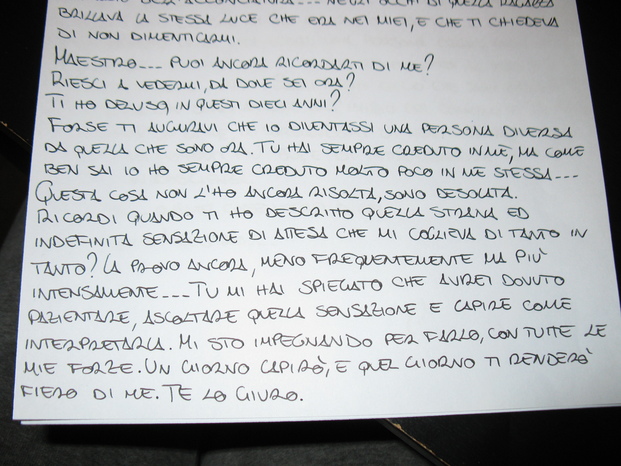 DELL'ACCONCIATURA--- NEGLI OCCHI DI QUELLA RAGAZZA
BRILLAVA LA STESSA LUCE CHE ERA NEI MIEI, E CHE TI CHIEDEVA
DI NON DIMENTICARMI.
MAESTRO--- PUOI ANCORA RICORDARTI DI ME?
RIESCI A VEDERMI, DA DOVE SEI ORA?
TI HO DELUSO, IN QUESTI DIECI ANNI?
FORSE TI AUGURAVI CHE IO DIVENTASSI UNA PERSONA DIVERSA
DA QUELLA CHE SONO ORA. TU HAI SEMPRE CREDUTO IN ME, MA COME
BEN SAI IO HO SEMPRE CREDUTO MOLTO POCO IN ME STESSA---
QUESTA COSA NON L'HO ANCORA RISOLTA, SONO DESOLATA.
RICORDI QUANDO TI HO DESCRITTO QUELLA STRANA ED
INDEFINITA SENSAZIONE DI ATTESA CHE MI COGLIEVA DI TANTO IN
TANTO? LA PROVO ANCORA, MENO FREQUENTEMENTE MA PIÙ
INTENSAMENTE---TU MI HAI SPIEGATO CHE AVREI DOVUTO
PAZIENTARE, ASCOLTARE QUELLA SENSAZIONE E CAPIRE COME
INTERPRETARLA. MI STO IMPEGNANDO PER FARLO, CON TUTTE LE
MIE FORZE. UN GIORNO CAPIRÒ, E QUEL GIORNO TI RENDERÒ
FIERO DI ME. TE LO GIURO.